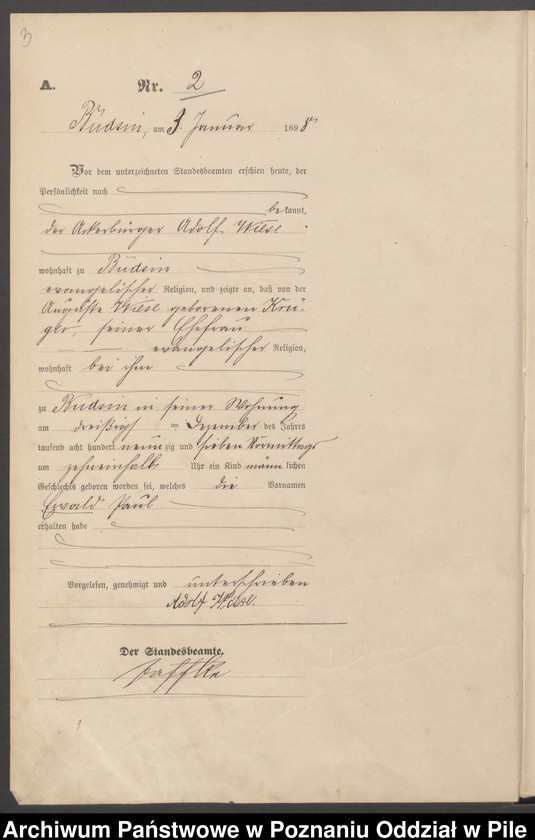 3
A.
Nr. 2
Budsin, am 3. Januar 1898
Vor dem unterzeichneten Standesbeamten erschien heute, der
Persönlichkeit nach
be kannt,
der Ackerbürger Adolf Wiese
wohnhaft zu Budsin
evangelischer Religion, und zeigte an, daß von der
Auguste Wiese geborenen Krü-
ger, seiner Ehefrau
evangelischer Religion,
wohnhaft bei ihm
zu Budsin in seiner Wohnung
am dreißigsten Dezember des Jahres
tausend acht hundert neunzig und sieben Vormittags
um zehneinhalb Uhr ein Kind männlichen
Geschlechts geboren worden sei, welches die Vornamen
Ewald Paul
erhalten habe
Vorgelesen, genehmigt und unterschrieben
Adolf Wiese.
Der Standesbeamte.
Archiwum Państwowe w Poznaniu Oddział w Pile